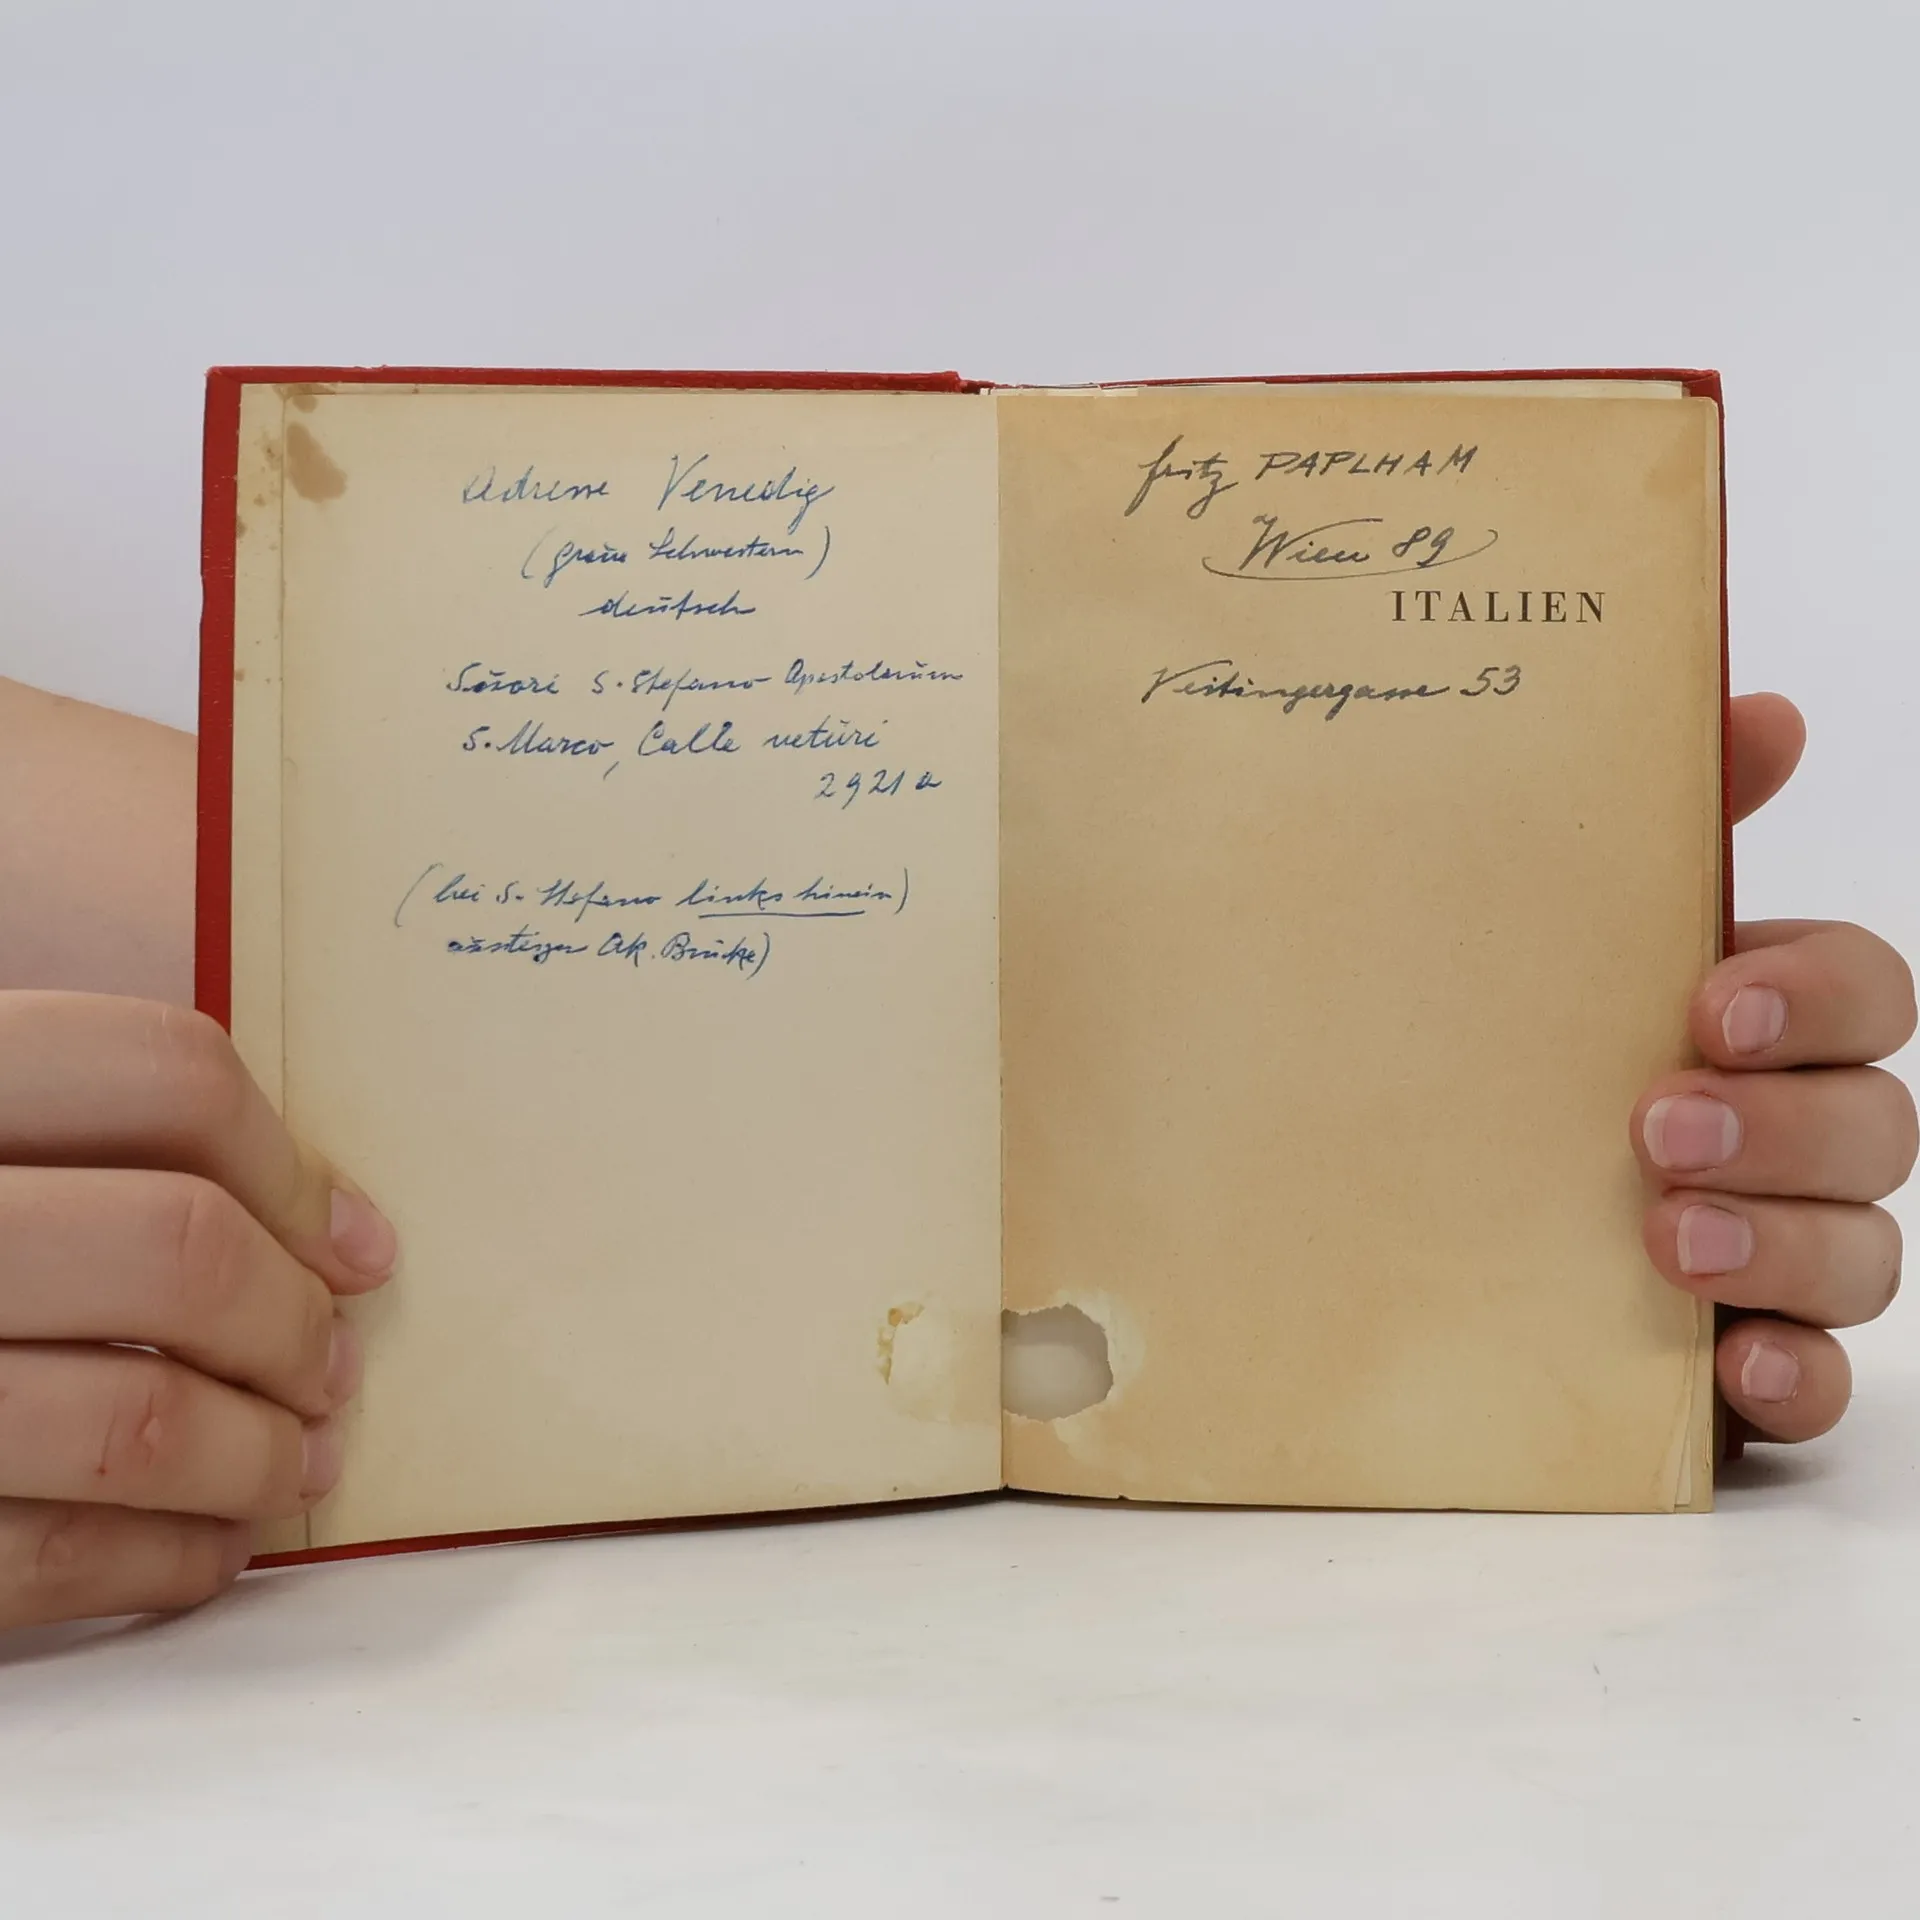 Adresse Venedig
(graue Schwestern)
deutsch
Suori S. Stefano Apostolorum
S. Marco, Calle veturi
2921 a
(bei S. Stefano links hinein)
aussteigen Ak. Brücke)
fritz PAPLHAM
Wien 89
ITALIEN
Veitingergasse 53